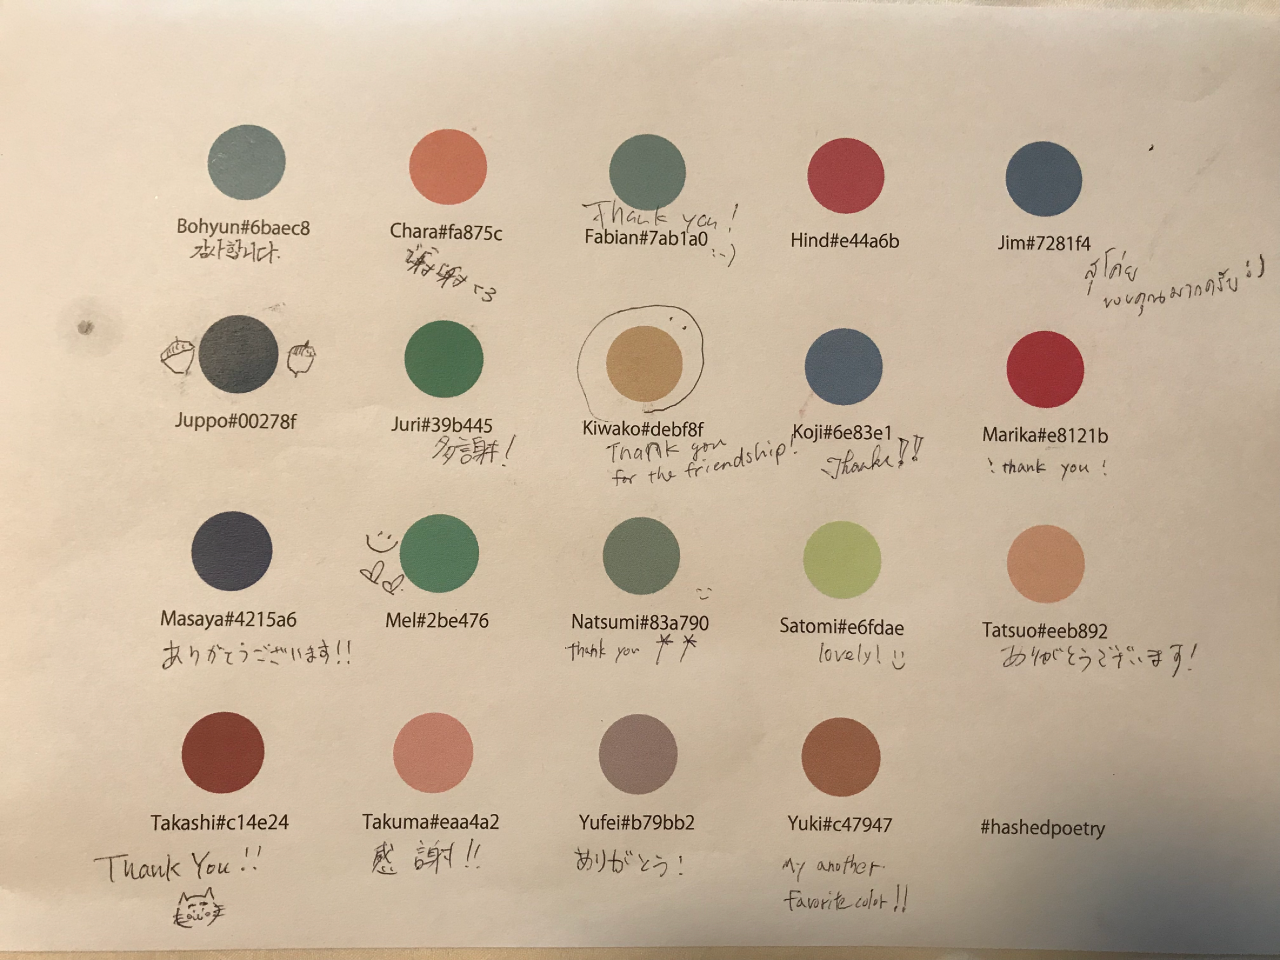 Bohyun#6baec8
감사합니다.
Chara#fa875c
謝謝 <3
Thank you!
Fabian#7ab1a0
:-)
Hind#e44a6b
Jim#7281f4
ขอบคุณมากครับ :)
Juppo#00278f
Juri#39b445
多謝!
Kiwako#debf8f
Thank you
for the friendship!
Koji#6e83e1
Thanks!!
Marika#e8121b
! thank you !
Masaya#4215a6
ありがとうございます!!
Mel#2be476
Natsumi#83a790
thank you **
Satomi#e6fdae
lovely!
Tatsuo#eeb892
ありがとうございます!
Takashi#c14e24
Thank You!!
Takuma#eaa4a2
感謝!!
Yufei#b79bb2
ありがとう!
Yuki#c47947
My another
favorite color!!
#hashedpoetry